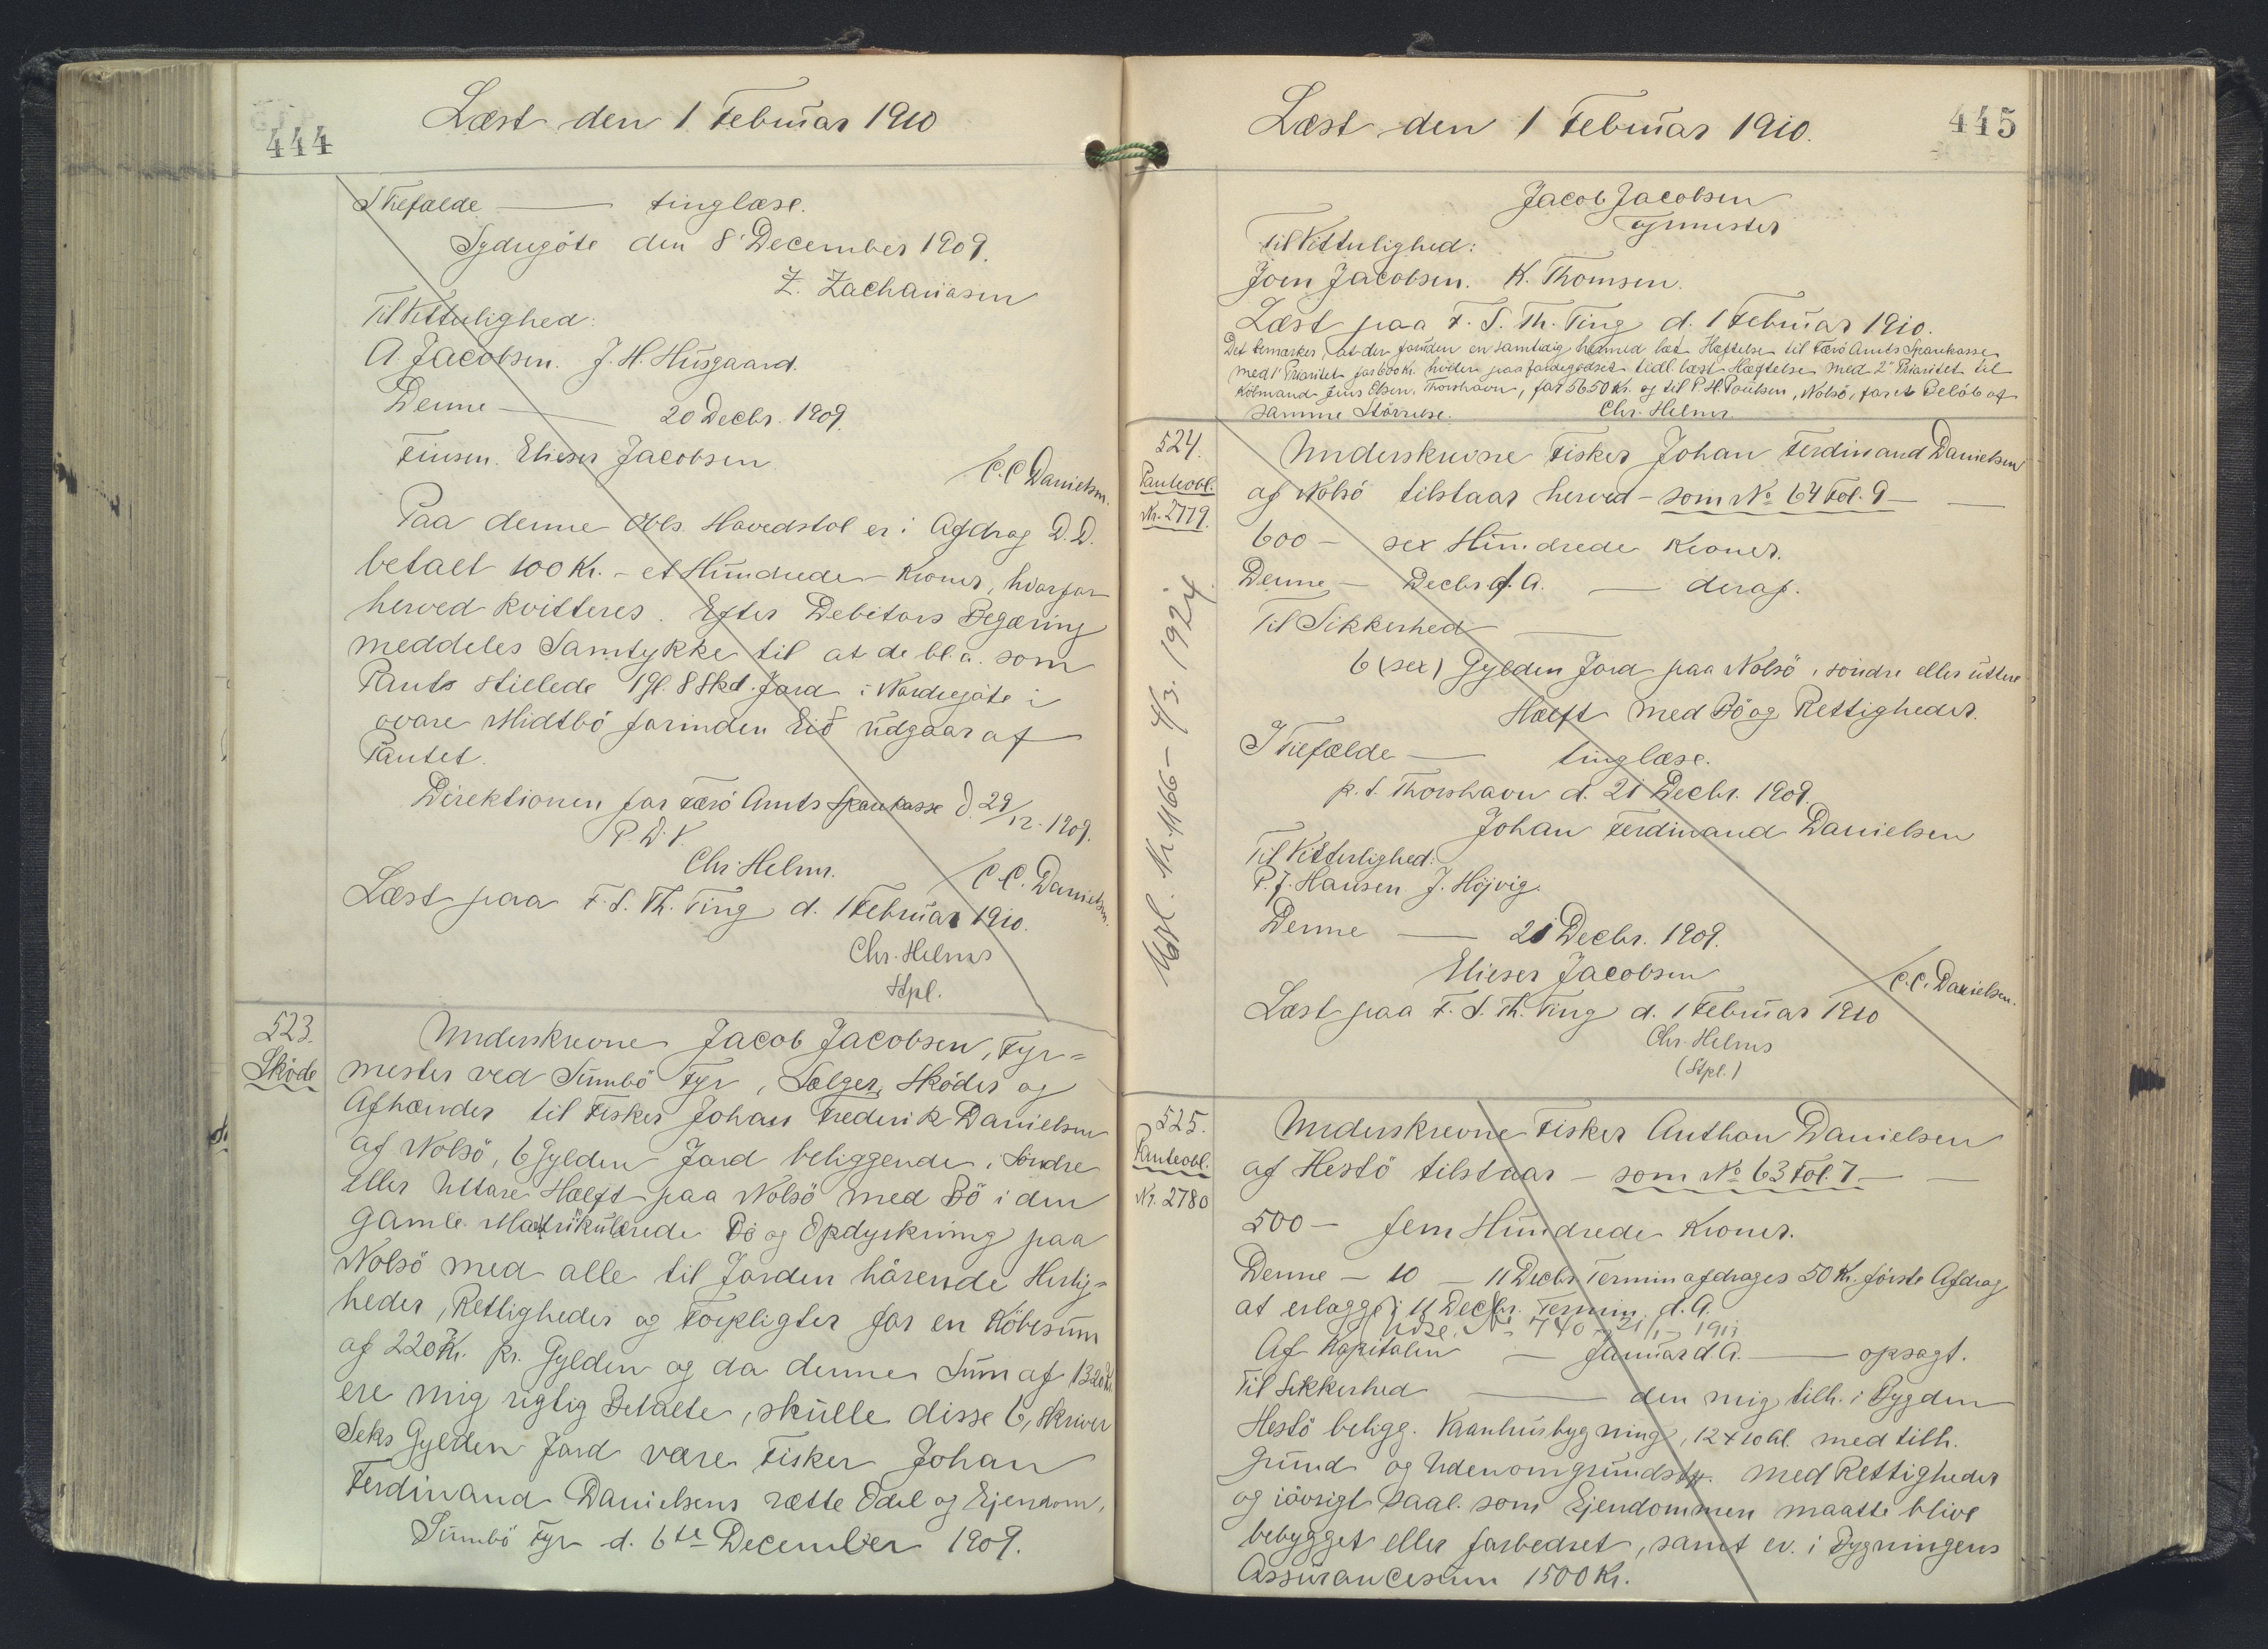 444
Læst den 1 Februar 1910
I Tilfælde — tinglæse.
Sydregöte den 8' December 1909.
Z. Zachariasen
Til Vitterlighed:
A. Jacobsen. J. H. Husgaard.
Denne — 20 Decbr. 1909.
Finsen. Elieser Jacobsen
/C. C. Danielsen.
Paa denne Obls. Hovedstol er i Afdrag D. D.
betalt 100 Kr. - et Hundrede - Kroner, hvorfor
herved kvitteres. Efter Debitors Begæring
meddeles Samtykke til at de bl. a. som
Pant stillede 1 gl. 8 Skd. Jord i Nordregöte i
ovare Midtbö forinden Eið udgaar af
Pantet.
Direktionen for Færö Amts Sparekasse d. 29/12. 1909.
P. D. V.
Chr. Helms.
/C. C. Danielsen.
Læst paa F. S. Th. Ting d. 1 Februar 1910.
Chr. Helms
Stpl.
523.
Sköde
Underskrevne Jacob Jacobsen, Fyr=
mester ved Sumbö Fyr, Sælger, Sköder og
Afhænder til Fisker Johan Frederik Danielsen
af Nolsö, 6 Gylden Jord beliggende i Söndre
eller Uttare Hælft paa Nolsö med Bö i den
gamle Matrikulerede Bö og Opdyrkning paa
Nolsö med alle til Jorden hörende Herlig=
heder, Rettigheder og Forpligter for en Köbesum
af 220 Kr. pr. Gylden og da denne Sum af 1320 Kr.
ere mig rigtig Betalte, skulle disse 6, skriver
Seks Gylden Jord være Fisker Johan
Ferdinand Danielsens rætte Odel og Ejendom,
Sumbö Fyr d. 6te December 1909.
445
Læst den 1 Februar 1910.
Jacob Jacobsen
Fyrmester
Til Vitterlighed:
Joen Jacobsen. K. Thomsen.
Læst paa F. S. Th. Ting d. 1 Februar 1910.
Det bemærkes, at der foruden en samtidig hermed læst Hæftelse til Færö Amts Sparekasse
med 1' Prioritet for 600 Kr. hviler paa faldegodset tidl. læst Hæftelse med 2' Prioritet til
Köbmand Jens Olsen, Thorshavn, for 5650 Kr. og til P. H. Poulsen, Nolsö, for et Belöb af
samme Störrelse. Chr. Helms.
524.
Panteobl.
Nr. 2779.
Underskrevne Fisker Johan Ferdinand Danielsen
af Nolsö tilstaar herved - som No 64 Fol. 9 —
600 - sex Hundrede Kroner.
Denne - Decbr. d. A. — deraf.
Til Sikkerhed —
6 (sex) Gylden Jord paa Nolsö, söndre eller uttere
Hælft med Bö og Rettigheder.
I Tilfælde — tinglæse.
p. t. Thorshavn d. 21 Decbr. 1909.
Johan Ferdinand Danielsen
Til Vitterlighed:
P. J. Hansen. J. Höjvig.
Denne — 21 Decbr. 1909.
Elieser Jacobsen
/C. C. Danielsen.
Læst paa F. S. Th. Ting d. 1 Februar 1910
Chr. Helms
(Stpl.)
Nr. 1166 - 4/3. 1924.
525.
Panteobl.
Nr. 2780
Underskrevne Fisker Anthon Danielsen
af Hestö tilstaar - som No 63 Fol. 7 —
500 - fem Hundrede Kroner.
Denne - 10 - 11 Decbr. Termin afdrages 50 Kr. förste Afdrag
at erlægge i 11 Decbr. Termin d. A.
Udsl. No 740 - 21/1 - 1911
Af Kapitalen — Januar d. A. — opsagt.
Til Sikkerhed — den mig tilh. i Bygden
Hestö beligg. Vaanhusbygning, 12 x 10 Al. med tilh.
Grund og Udenomgrundstk. med Rettigheder
og iövrigt saal. som Ejendommen maatte blive
bebygget eller forbedret, samt ev. i Bygningens
Assurancesum 1500 Kr.